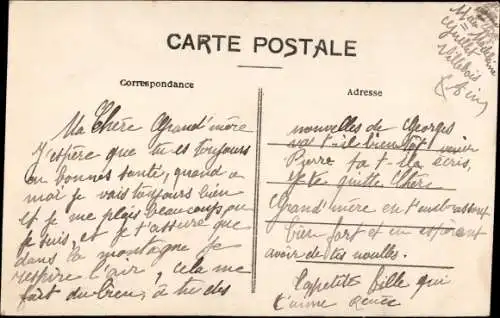 CARTE POSTALE
Correspondance
Adresse
Madeleine
Villebois
(Ain)
Ma Chère Grand'mère
J'espère que tu es toujours
en bonnes santé, quand a
moi je vais toujours bien
et je me plais beaucoup ou
je suis, et je t'assure que
dans la montagne je
respire l'air, cela me
fait du bien, a tu des
nouvelles de Georges
va t-il bientôt venir
Pierre ta t-il écris,
je te quitte Chère
Grand'mère en t'embrassant
bien fort et en esperant
avoir de tes noulles.
Ta petite fille qui
t'aime Renée